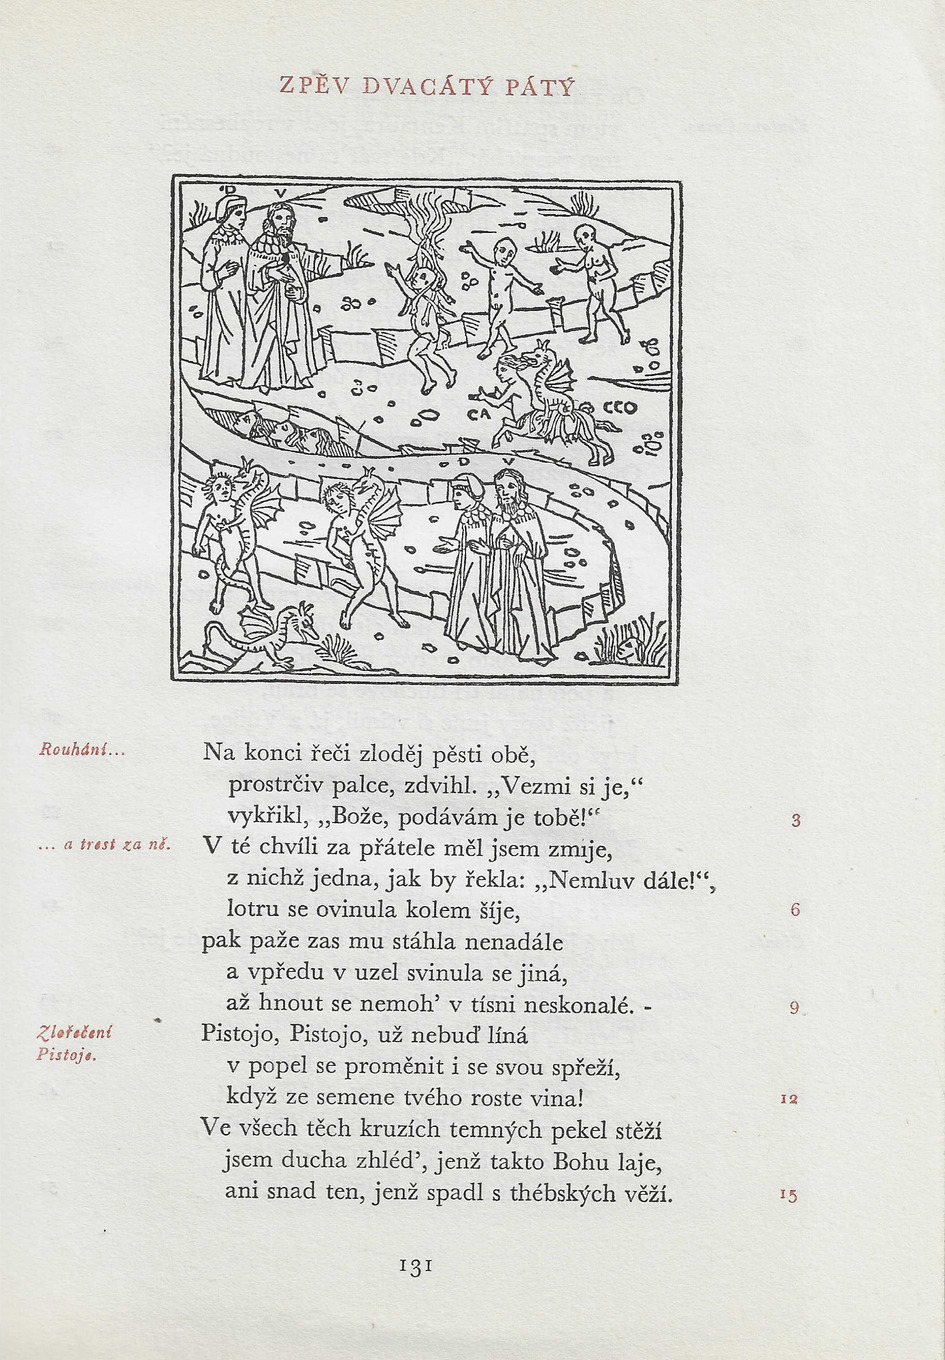 ZPĚV DVACÁTÝ PÁTÝ
D V
CA CCO
D V
Rouhání...
Na konci řeči zloděj pěsti obě,
prostrčiv palce, zdvihl. „Vezmi si je,“
vykřikl, „Bože, podávám je tobě!“
3
... a trest za ně.
V té chvíli za přátele měl jsem zmije,
z nichž jedna, jak by řekla: „Nemluv dále!“,
lotru se ovinula kolem šíje,
6
pak paže zas mu stáhla nenadále
a vpředu v uzel svinula se jiná,
až hnout se nemoh’ v tísni neskonalé. -
9
Zlořečení
Pistoje.
Pistojo, Pistojo, už nebuď líná
v popel se proměnit i se svou spřeží,
když ze semene tvého roste vina!
12
Ve všech těch kruzích temných pekel stěží
jsem ducha zhléd’, jenž takto Bohu laje,
ani snad ten, jenž spadl s thébských věží.
15
131